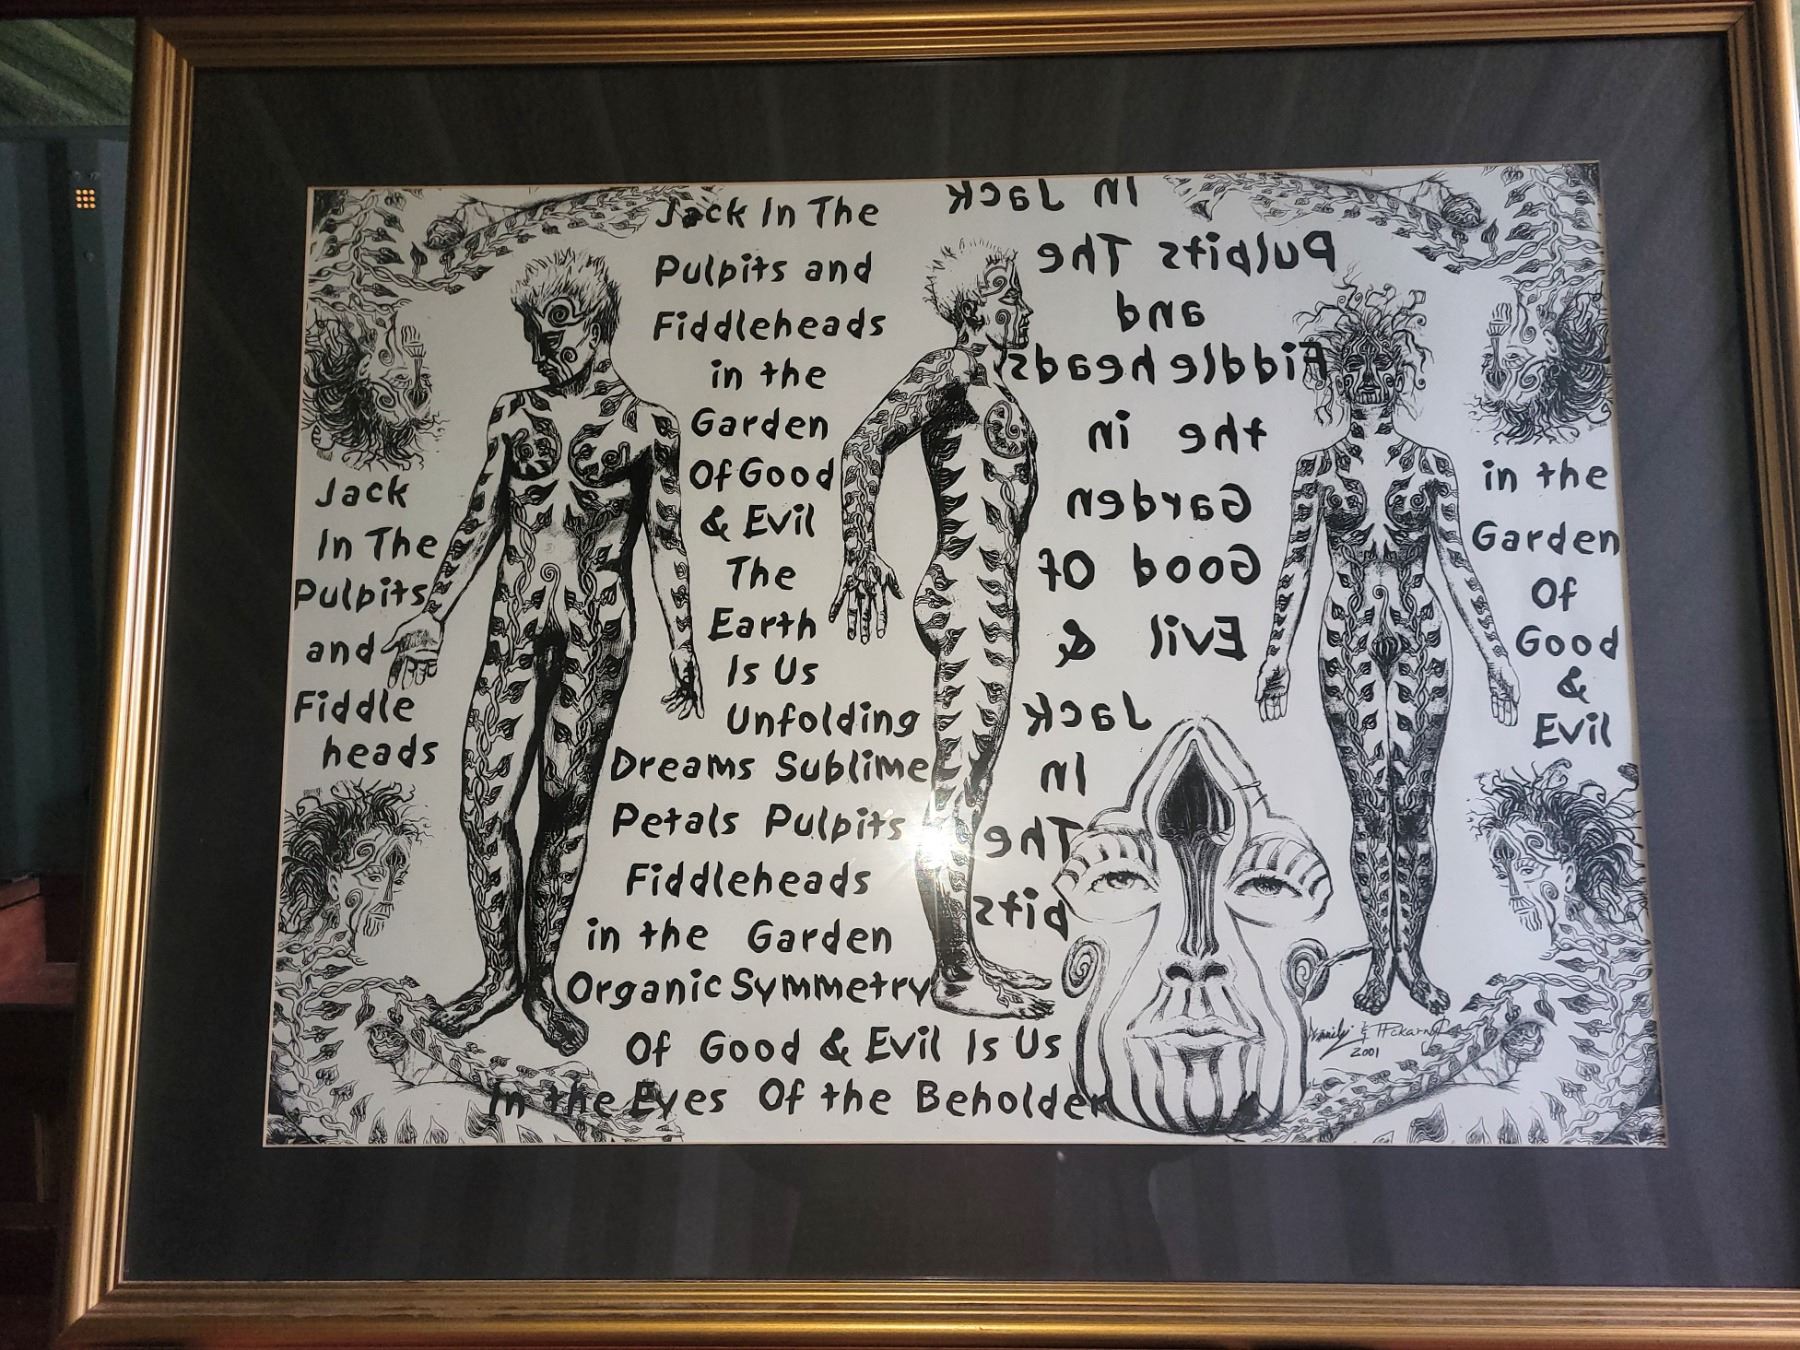 Jack In The
Pulpits and
Fiddleheads
in the
Garden
Of Good
& Evil
The
Earth
Is Us
Unfolding
Dreams Sublime
Petals Pulpits
Fiddleheads
in the Garden
Organic Symmetry
Of Good & Evil Is Us
In the Eyes Of the Beholder
Jack
In The
Pulpits
and
Fiddle
heads
In Jack
Pulpits The
and
Fiddleheads
the in
Garden
Good Of
Evil &
Jack
In
The
pits
in the
Garden
Of
Good
&
Evil
2001